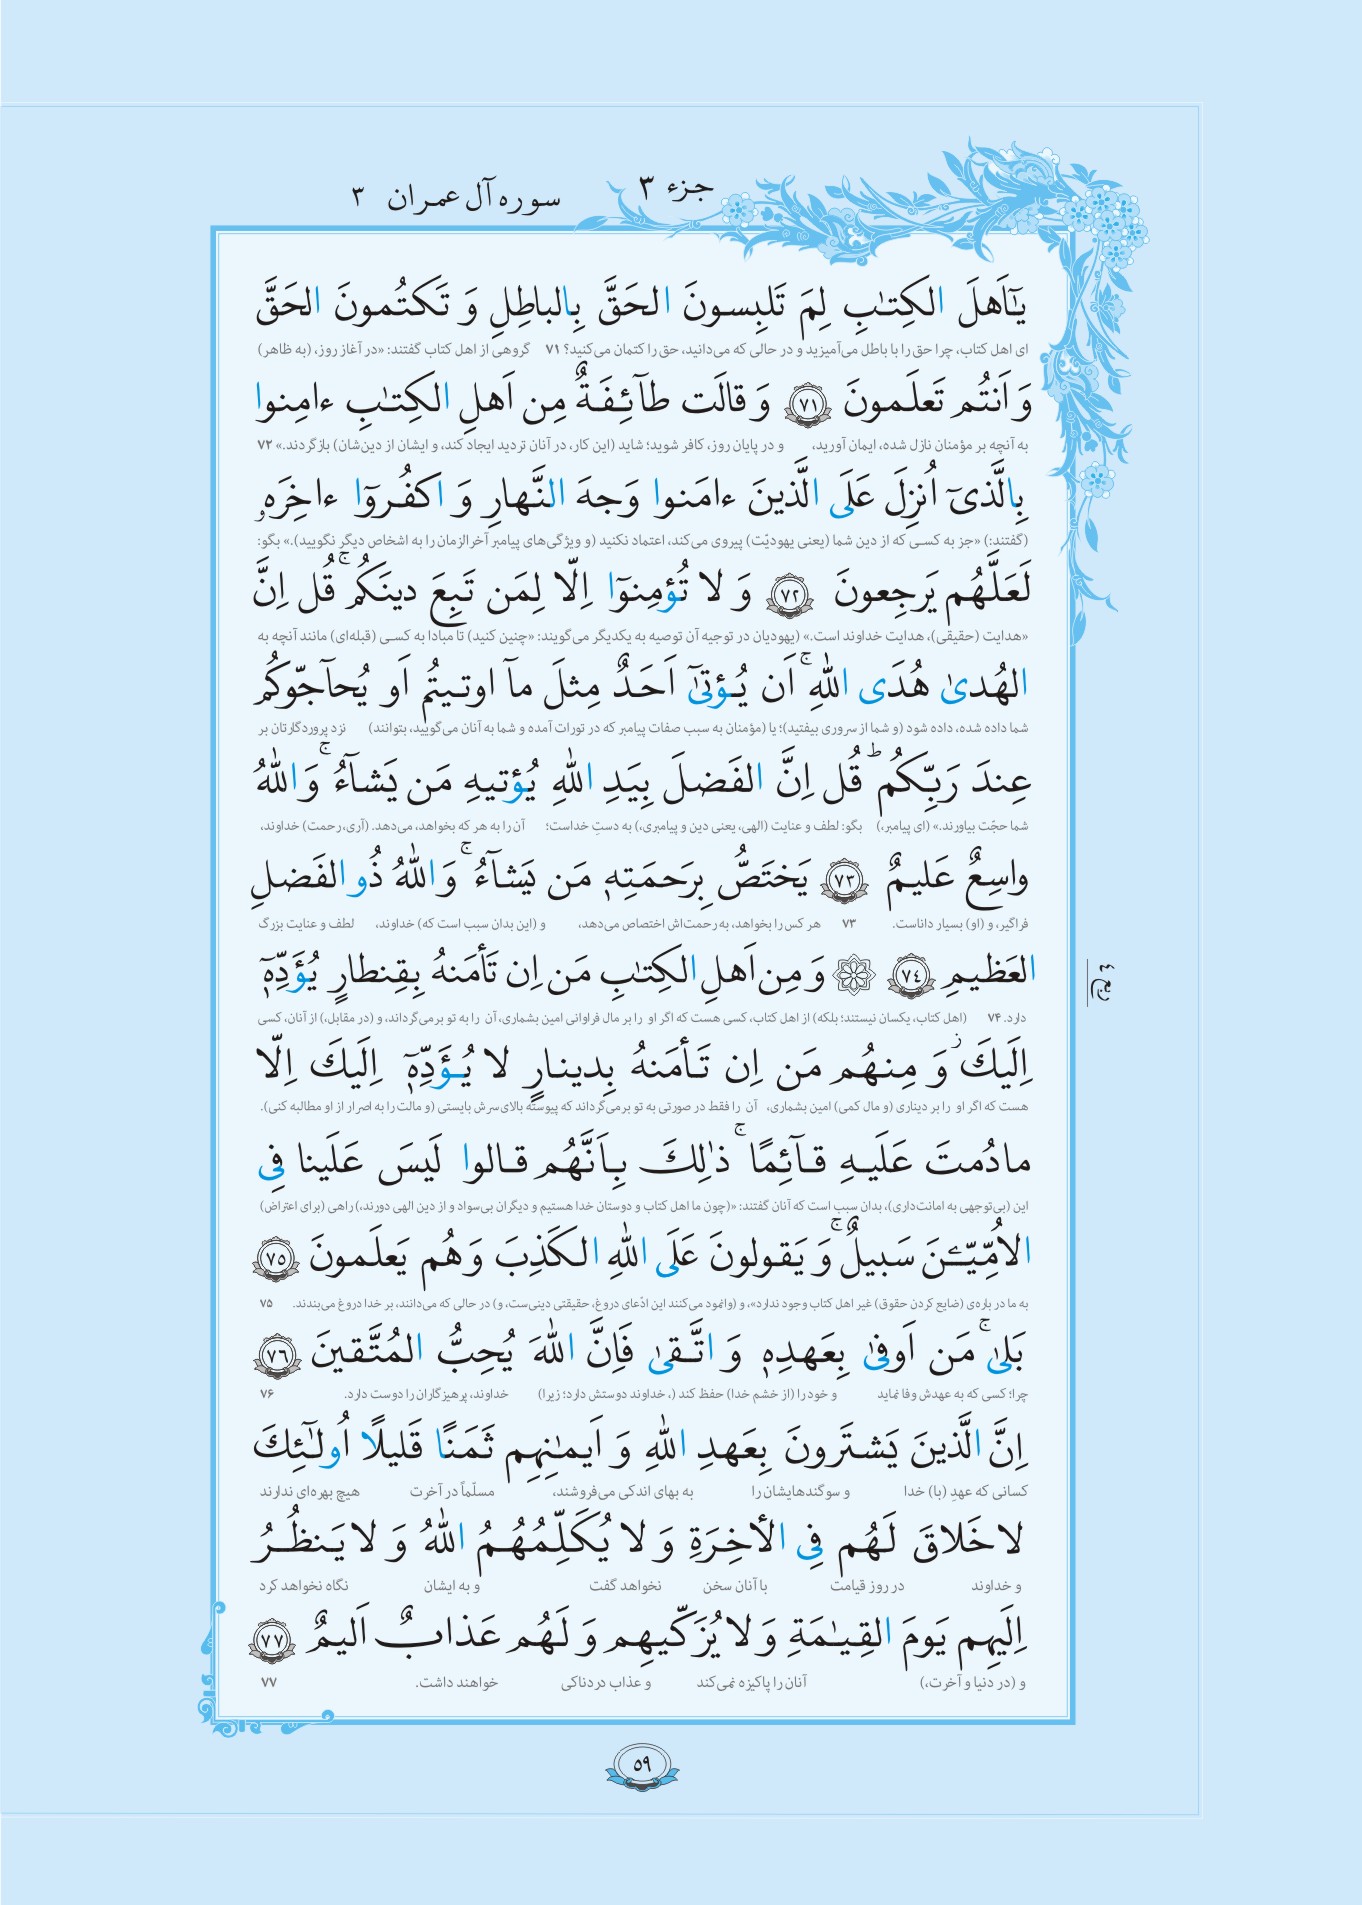 جزء ۳
سوره آل عمران ۳
يـٰٓاَهلَ الكِتـٰبِ لِمَ تَلبِسونَ الحَقَّ بِالباطِلِ وَ تَكتُمونَ الحَقَّ
ای اهل کتاب، چرا حق را با باطل می‌آمیزید و در حالی که می‌دانید، حق را کتمان می‌کنید؟ ۷۱ گروهی از اهل کتاب گفتند: «در آغاز روز، (به ظاهر)
وَ اَنتُم تَعلَمونَ ﴿٧١﴾ وَ قالَت طآئِفَةٌ مِن اَهلِ الكِتـٰبِ ءامِنوا
به آنچه بر مؤمنان نازل شده، ایمان آورید، و در پایان روز، کافر شوید؛ شاید (این کار، در آنان تردید ایجاد کند، و ایشان از دین‌شان) بازگردند.» ۷۲
بِالَّذیٓ اُنزِلَ عَلَی الَّذینَ ءامَنوا وَجهَ النَّهارِ وَ اكفُروٓا ءاخِرَهو
(گفتند:) «جز به کسـی که از دین شما (یعنی یهودیّت) پیروی می‌کند، اعتماد نکنید (و ویژگی‌های پیامبر آخرالزمان را به اشخاص دیگر نگویید).» بگو:
لَعَلَّهُم يَرجِعونَ ﴿٧٢﴾ وَ لا تُؤمِنوٓا اِلّا لِمَن تَبِعَ دينَكُمۚ قُل اِنَّ
«هدایت (حقیقی)، هدایت خداوند است.» (یهودیان در توجیه آن توصیه به یکدیگر می‌گویند: «چنین کنید) تا مبادا به کسـی (قبله‌ای) مانند آنچه به
الهُدیٰ هُدَی اللّٰهِۚ اَن يُؤتیٰٓ اَحَدٌ مِثلَ مآ اوتـيتُم اَو يُحآجّوكُم
شما داده شده، داده شود (و شما از سروری بیفتید)؛ یا (مؤمنان به سبب صفات پیامبر که در تورات آمده و شما به آنان می‌گویید، بتوانند) نزد پروردگارتان بر
عِندَ رَبِّكُمۗ قُل اِنَّ الفَضلَ بِيَدِ اللّٰهِ يُؤتيهِ مَن يَشآءُۚ وَ اللّٰهُ
شما حجّت بیاورند.» (ای پیامبر،) بگو: لطف و عنایت (الهی، یعنی دین و پیامبری،) به دستِ خداست؛ آن را به هر که بخواهد، می‌دهد. (آری، رحمت) خداوند،
واسِعٌ عَليمٌ ﴿٧٣﴾ يَختَصُّ بِرَحمَتِهٖ مَن يَشآءُۚ وَ اللّٰهُ ذُو الفَضلِ
فراگیر، و (او) بسیار داناست. ۷۳ هر کس را بخواهد، به رحمت‌اش اختصاص می‌دهد، و (این بدان سبب است که) خداوند، لطف و عنایت بزرگ
العَظيمِ ﴿٧٤﴾ ۞ وَ مِن اَهلِ الكِتـٰبِ مَن اِن تَأمَنهُ بِقِنطارٍ يُؤَدِّهٖٓ
ربع ٤
دارد. ۷۴ (اهل کتاب، یکسان نیستند؛ بلکه) از اهل کتاب، کسی هست که اگر او را بر مال فراوانی امین بشماری، آن را به تو برمی‌گرداند، و (در مقابل،) از آنان، کسی
اِلَيكَۖ وَ مِنهُم مَن اِن تَأمَنهُ بِدينارٍ لا يُؤَدِّهٖٓ اِلَيكَ اِلّا
هست که اگر او را بر دیناری (و مال کمی) امین بشماری، آن را فقط در صورتی به تو برمی‌گرداند که پیوسته بالای سرش بایستی (و مالت را به اصرار از او مطالبه کنی).
مادُمتَ عَلَيهِ قآئِمًاۚ ذٰلِكَ بِاَنَّهُم قالوا لَيسَ عَلَينا فِی
این (بی‌توجهی به امانت‌داری)، بدان سبب است که آنان گفتند: «(چون ما اهل کتاب و دوستان خدا هستیم و دیگران بی‌سواد و از دین الهی دورند،) راهی (برای اعتراض)
الاُمِّيّـۧنَ سَبيلٌۚ وَ يَقولونَ عَلَی اللّٰهِ الكَذِبَ وَ هُم يَعلَمونَ ﴿٧٥﴾
به ما در باره‌ی (ضایع کردن حقوق) غیر اهل کتاب وجود ندارد»، و (وانمود می‌کنند این ادّعای دروغ، حقیقتی دینی‌ست، و) در حالی که می‌دانند، بر خدا دروغ می‌بندند. ۷۵
بَلیٰۚ مَن اَوفیٰ بِعَهدِهٖ وَ اتَّقیٰ فَاِنَّ اللّٰهَ يُحِبُّ المُتَّقينَ ﴿٧٦﴾
چرا؛ کسی که به عهدش وفا نماید و خود را (از خشم خدا) حفظ کند (، خداوند دوستش دارد؛ زیرا) خداوند، پرهیزگاران را دوست دارد. ۷۶
اِنَّ الَّذينَ يَشتَرونَ بِعَهدِ اللّٰهِ وَ اَيمـٰنِهِم ثَمَنًا قَليلًا اُولـٰٓئِكَ
کسانی که عهدِ (با) خدا و سوگندهایشان را به بهای اندکی می‌فروشند، مسلّماً در آخرت هیچ بهره‌ای ندارند
لا خَلاقَ لَهُم فِی الأخِرَةِ وَ لا يُكَلِّمُهُمُ اللّٰهُ وَ لا يَنظُرُ
و خداوند در روز قیامت با آنان سخن نخواهد گفت و به ایشان نگاه نخواهد کرد
اِلَيهِم يَومَ القِيـٰمَةِ وَ لا يُزَكّيهِم وَ لَهُم عَذابٌ اَليمٌ ﴿٧٧﴾
و (در دنیا و آخرت،) آنان را پاکیزه نمی‌کند و عذاب دردناکی خواهند داشت. ۷۷
٥٩